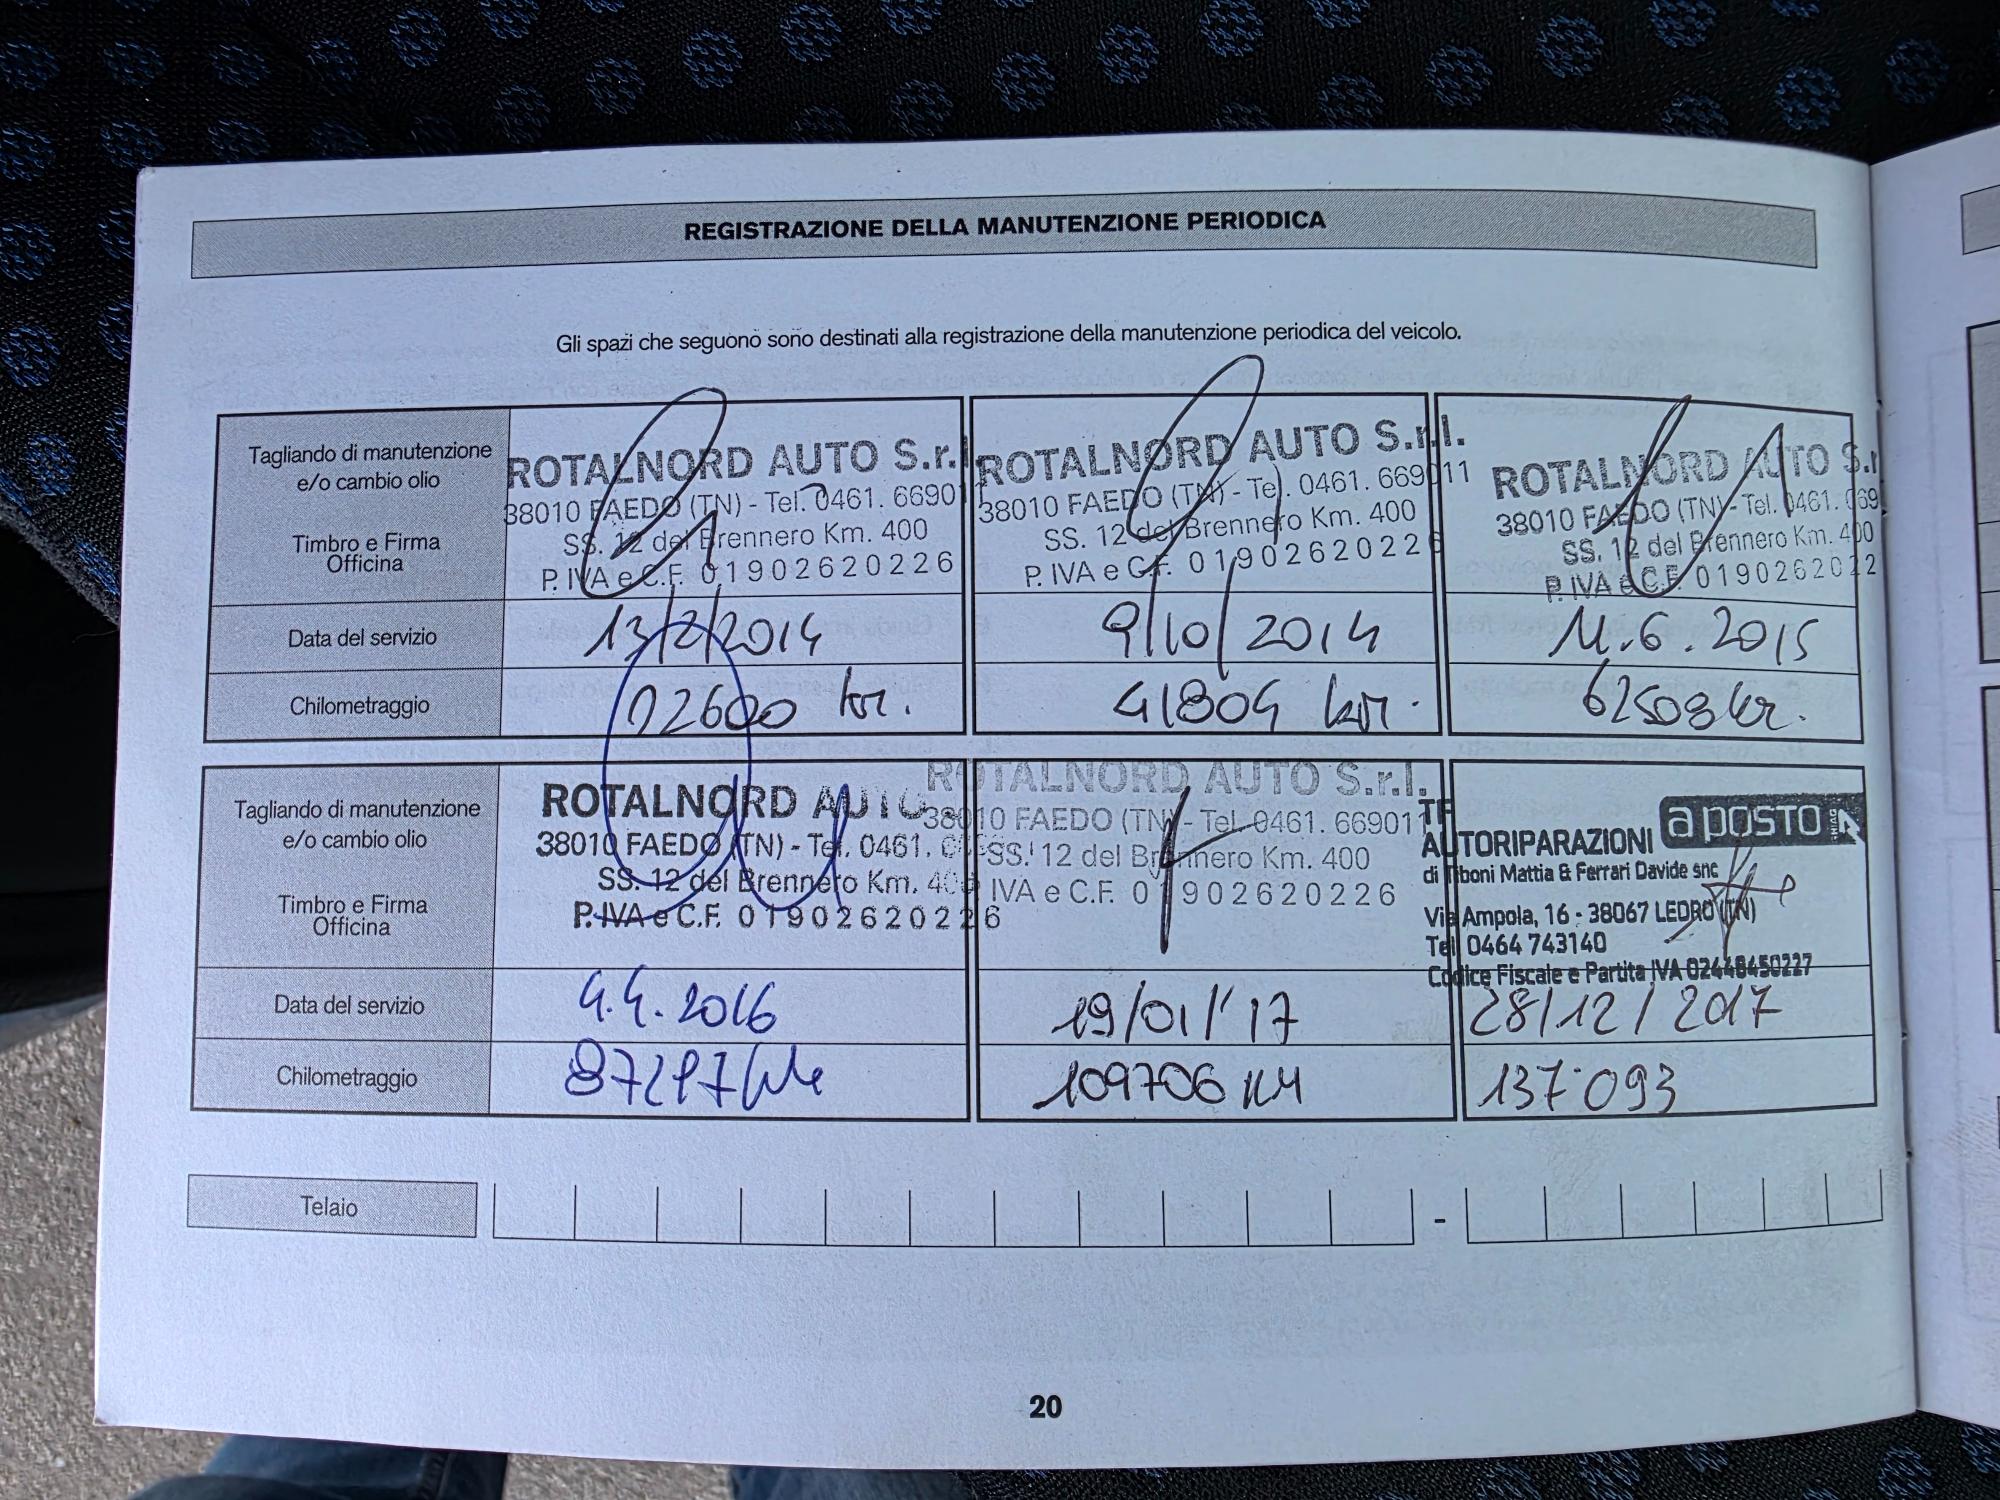 REGISTRAZIONE DELLA MANUTENZIONE PERIODICA
Gli spazi che seguono sono destinati alla registrazione della manutenzione periodica del veicolo.
Tagliando di manutenzione
e/o cambio olio
Timbro e Firma
Officina
ROTALNORD AUTO S.r.l.
38010 FAEDO (TN) - Tel. 0461. 66901
SS. 12 del Brennero Km. 400
P. IVA e C.F. 01902620226
ROTALNORD AUTO S.r.l.
38010 FAEDO (TN) - Tel. 0461. 669011
SS. 12 del Brennero Km. 400
P. IVA e C.F. 01902620226
ROTALNORD AUTO S.r
38010 FAEDO (TN) - Tel. 0461. 669
SS. 12 del Brennero Km. 400
P. IVA e C.F. 0190262022
Data del servizio
13/2/2014
9/10/2014
11.6.2015
Chilometraggio
41804 km.
62503 km.
Tagliando di manutenzione
e/o cambio olio
Timbro e Firma
Officina
ROTALNORD AUTO
38010 FAEDO (TN) - Tel. 0461.
SS. 12 del Brennero Km. 400
P. IVA e C.F. 01902620226
ROTALNORD AUTO S.r.l.
38010 FAEDO (TN) - Tel. 0461. 669011
SS. 12 del Brennero Km. 400
IVA e C.F. 01902620226
TF
AUTORIPARAZIONI
a posto
RHIAG
di Tiboni Mattia & Ferrari Davide snc
Via Ampola, 16 - 38067 LEDRO (TN)
Tel 0464 743140
Codice Fiscale e Partita IVA 02448450227
Data del servizio
4.4.2016
19/01/'17
28/12/2017
Chilometraggio
109706 KM
137.093
Telaio
-
20